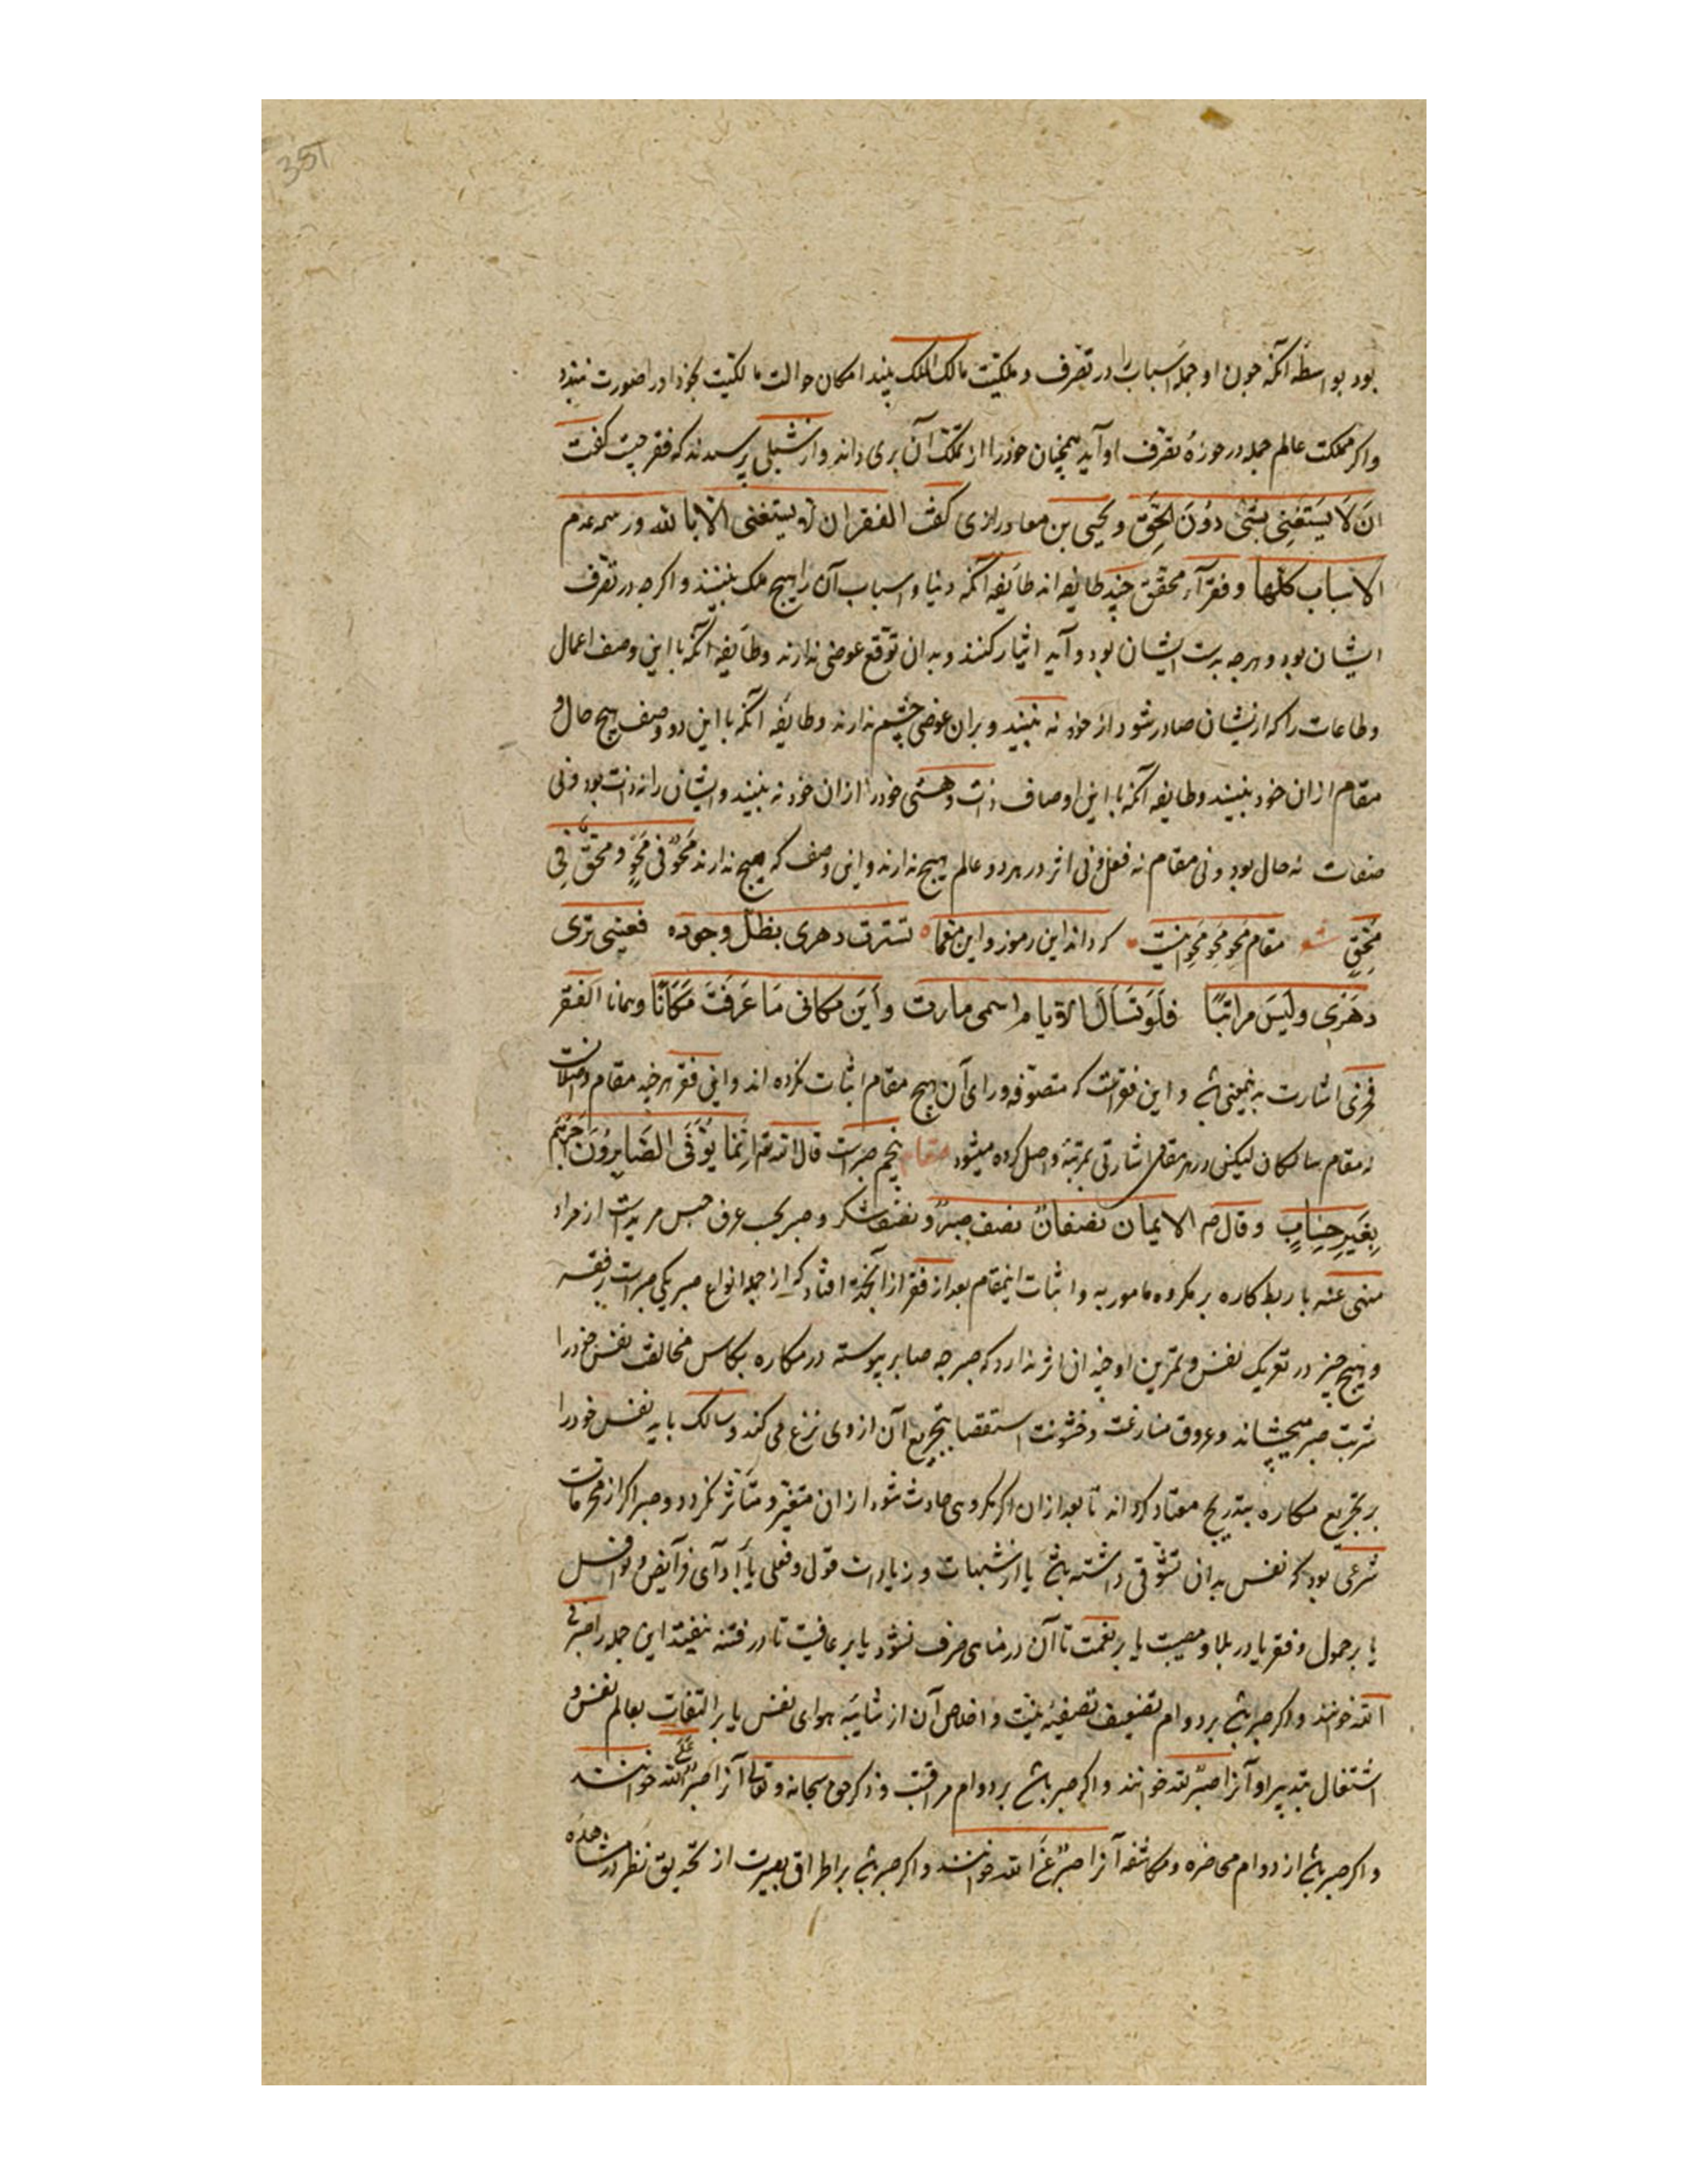 بود بواسطه آنکه چون او جمله اسباب را در تصرف و ملکیت مالک الملک بیند امکان حوالت مالکیت بخود او را صورت نبندد
واکر مملکت عالم جمله در حوزهٔ تصرف او آید همچنان خود را از تملک آن بری داند و از شبلی پرسیدند که فقر چیست کفت
ان لَا یَستَغنِی بشئ دوُنَ الحَقّ و یحیی بن معاد رازی کفت الفقر ان لا یستغنی الا بالله و رسمه عدم
الاسباب کلها و فقرآء محقق چند طایفه اند طایفه آنکه دنیا و اسباب آن را هیچ ملک نبینند و اکرچه در تصرف
ایشان بود و هرچه بدست ایشان بود و آید ایثار کنند و بدان توقع عوضی ندارند و طایفه آنکه با این وصف اعمال
و طاعات را که از یشان صادر شود از خود نه بینند و بران عوضی چشم ندارند و طایفه آنکه با این دو وصف هیچ حال و
مقام ازان خود نبینند و طایفه آنکه با این اوصاف ذات و هستی خود را ازان خود نه بینند و ایشان را نه ذات بود و نی
صفات نه حال بود و نی مقام نه فعل و نی اثر در هر دو عالم هیچ ندارند و این وصف که هیچ ندارند مَحوٌ فی مَحوٍ و محقٌ فِی
مَحقٍ شعر مقام محو محو محو اینست که داند این رموز و این معما تسترت دهری بظل وجوده فعینی تری
دهَرَی و لَیسَ یرانیا فلَو تَسألَ الایام اسمی مادرت و اَین مکانی مَا عَرَفتَ مَکانًا و همانا الفقر
فخری اشارت به نمعنی باشد و این فقریست که متصوفه ورای آن هیچ مقام اثبات نکرده اند و این فقر هرچند مقام واصلانست
نه مقام سالکان لیکن در هر مقام اشارتی بمرتبهٔ واصل کرده میشود مقام پنجم صبر است قال الله تعالی اِنَّما یُوَفّی الصَّابرُونَ اَجرَهُم
بِغَیرِ حِسَابٍ و قال صم الایمان نصفانٌ نصف صبرٌ و نصف شکر و صبر بحسب عرف حبس مرید است از مراد
منهی عنه یا ربط کاره بر مکروه مامور به و اثبات اینمقام بعد از فقر از آنجهة افتاد که از جمله انواع صبر یکی صبر است بر فقر
و هیچ چیز در تعریک نفس و تمرین او چندان اثر ندارد که صبر چه صابر پیوسته در مکاره بکاس مخالفت نفس خود را
شربت صبر میچشاند و عروق منازعت و خشونت استقصا بتجریع آن از وی نزع می کند و سالک باید نفس خود را
بر تجریع مکاره بتدریج معتاد کرداند تا بعد ازان اکر مکروهی حادث شود ازان متغیر و متأثر نکردد و صبر اکر از محرمات
شرعی بود که نفس بدان تشوقی داشته باشد یا از شبهات و زیادات قولی و فعلی یا بر ادآی فرآیض و نوافل
یا بر خمول و فقر یا در بلا و مصیبت یا بر نعمت تا آن در مناهی صرف نشود یا بر عافیت تا در فتنه نیفتد این جمله را صبر فی
الله خوانند و اکر صبر باشد بر دوام تصفیهٔ نیت و اخلاص آن از شایبهٔ هوای نفس یا بر التفات بعالم نفس و
اشتغال بتدبیر او آنرا صبر لله خوانند و اکر صبر باشد بر دوام مراقبت و ذکر حق سبحانه و تعالی آنرا صبر علی الله خوانند
و اکر صبر باشد از دوام محاضره و مکاشفه آنرا صبرٌ عَن الله خوانند و اکر صبر باشد بر اطراق بصیرت از تحدیق نظر در مشاهده